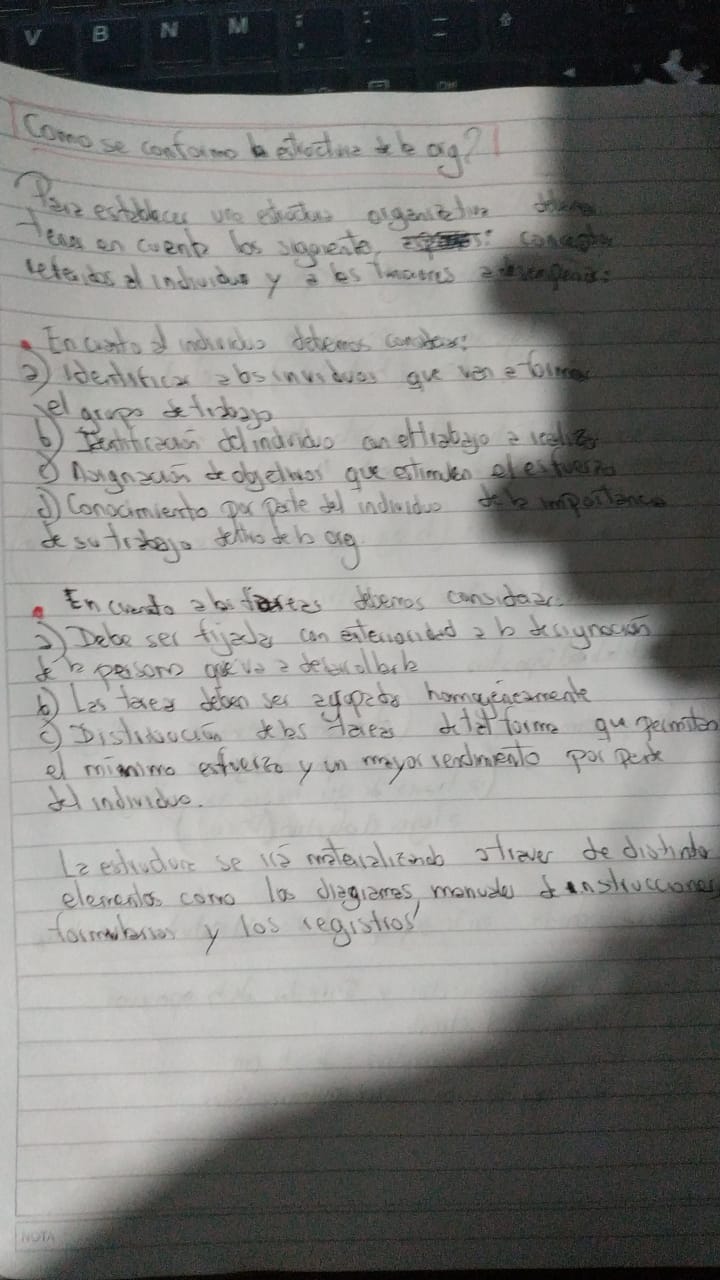 V B N M
Como se conformo la estructura de la org?
Para establecer una estructura organizativa debemos
tener en cuenta los siguiente, conceptos
referidos al individuo y a las a desempeñar:
En cuanto al individuo debemos considerar:
a) Identificar a los invividuos que van a formar
el grupo de trabajo
b) Identificación del individuo con el trabajo a realizar
c) Asignación de objetivos que estimulen el esfuerzo
d) Conocimiento por parte del individuo de la importancia
de su trabajo dentro de la org.
En cuanto a las tareas debemos considerar:
a) Debe ser fijada con anterioridad a la designación
de la persona que va a desarrollarla
b) Las tareas deben ser agrupadas homogéneamente
c) Distribución de las tareas de tal forma que permitan
el minimo esfuerzo y un mayor rendimiento por parte
del individuo.
La estructura se irá materializando atraver de distintos
elementos como los diagramas, manuales de instrucciones,
formularios y los registros
NOTA